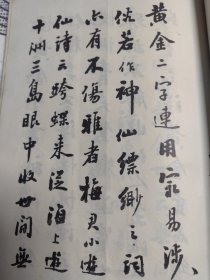 黄金二字連用最易涉
俗若作神仙縹緲之詞
亦有不傷雅者梅君小遊
仙詩云蛉蝶来從海上遊
十州三島眼中收世間無